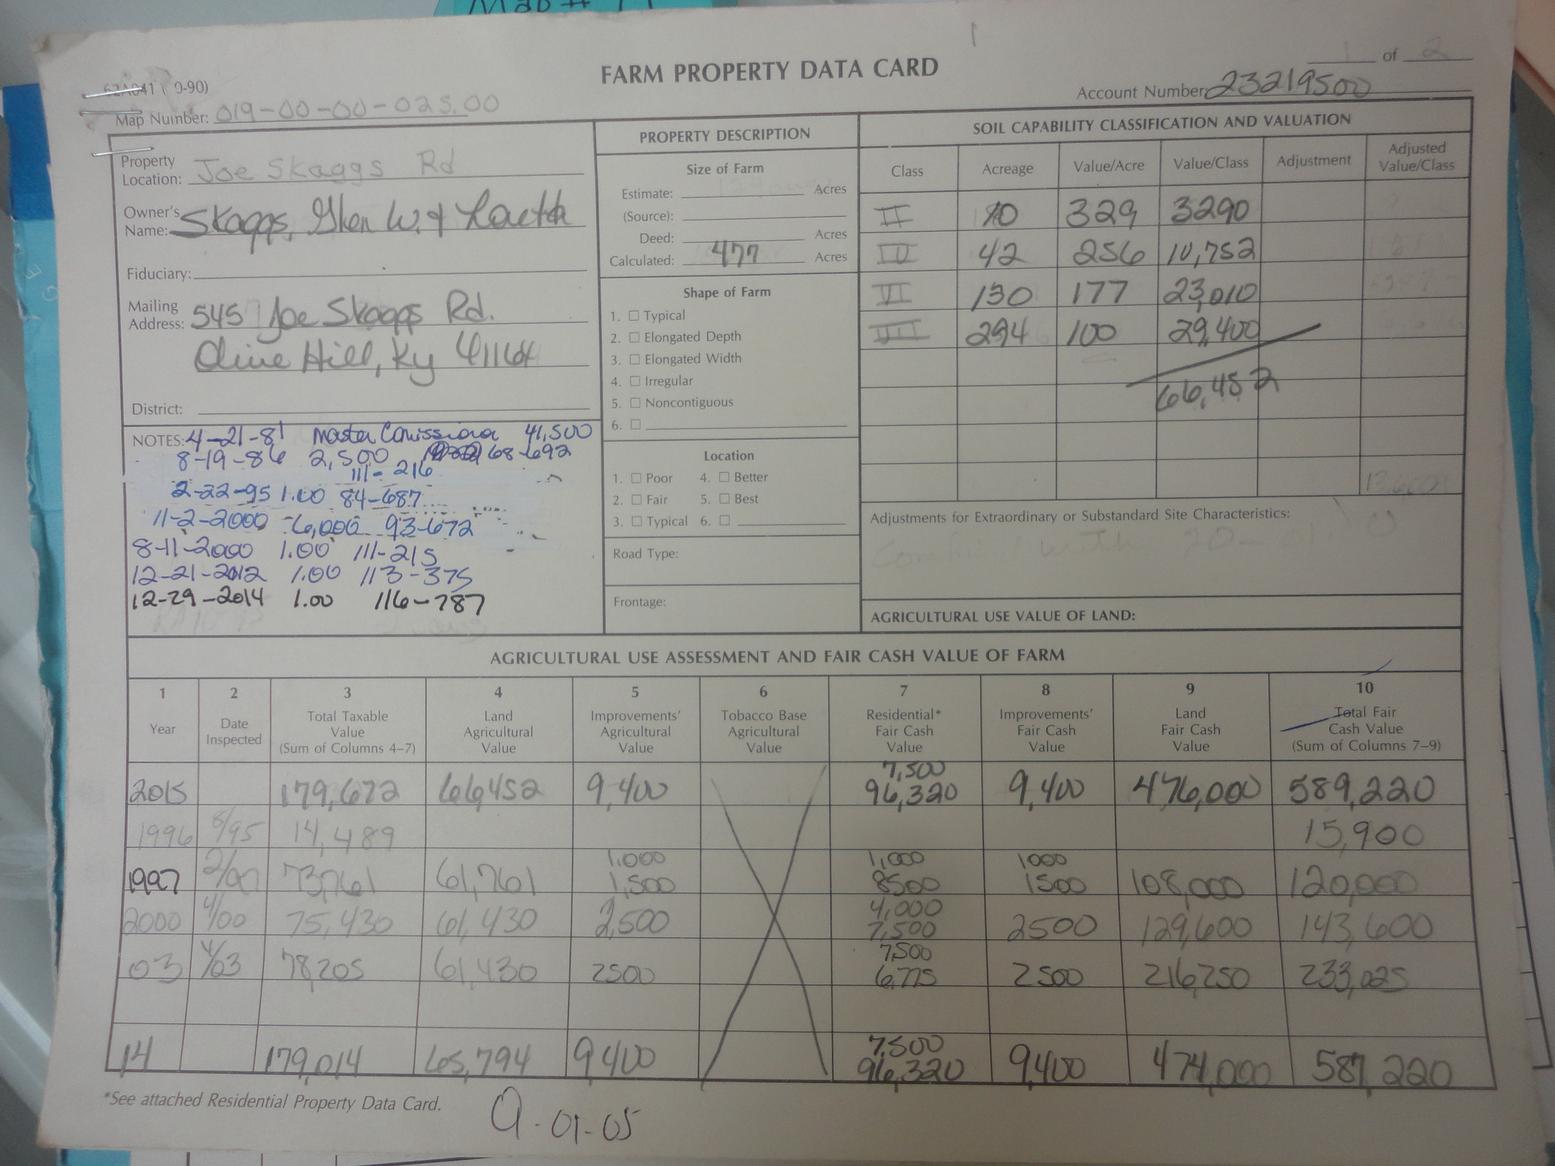 Map # 19
1 of 2
FARM PROPERTY DATA CARD
62A041 ( 0-90)
Account Number 23219500
Map Number: 019-00-00-025.00
Property Location: Joe Skaggs Rd
Owner's Name: Skaggs, Glen W. &
Fiduciary:
Mailing Address: 545 Joe Skaggs Rd.
Olive Hill, Ky 41164
District:
NOTES: 4-21-81 Master Comissiona 41,500
8-19-86 2,500 68-692
111-216
2-22-95 1.00 84-687
11-2-2000 6,000 93-672
8-11-2000 1.00 111-215
12-21-2012 1.00 113-375
12-29-2014 1.00 116-787
PROPERTY DESCRIPTION
Size of Farm
Estimate: Acres
(Source):
Deed: Acres
Calculated: 477 Acres
Shape of Farm
1. Typical
2. Elongated Depth
3. Elongated Width
4. Irregular
5. Noncontiguous
6.
Location
1. Poor 4. Better
2. Fair 5. Best
3. Typical 6.
Road Type:
Frontage:
SOIL CAPABILITY CLASSIFICATION AND VALUATION
Class Acreage Value/Acre Value/Class Adjustment Adjusted Value/Class
II 10 329 3290
IV 42 256 10,752
VI 130 177 23,010
VIII 294 100 29,400
66,452
Adjustments for Extraordinary or Substandard Site Characteristics:
Combined with 20-01.
AGRICULTURAL USE VALUE OF LAND:
AGRICULTURAL USE ASSESSMENT AND FAIR CASH VALUE OF FARM
1 2 3 4 5 6 7 8 9 10
Year Date Inspected Total Taxable Value (Sum of Columns 4-7) Land Agricultural Value Improvements' Agricultural Value Tobacco Base Agricultural Value Residential* Fair Cash Value Improvements' Fair Cash Value Land Fair Cash Value Total Fair Cash Value (Sum of Columns 7-9)
7,500
2015 179,672 66,452 9,400 96,320 9,400 476,000 589,220
1996 8/95 14,489 15,900
1,000 1,000 1000
1997 2/97 73,761 61,761 1,500 8500 1500 108,000 120,000
4,000
2000 4/00 75,430 61,430 2,500 7,500 2500 129,600 143,600
7,500
03 4/03 78,205 61,430 2500 6,775 2500 216,250 233,025
7,500
14 179,014 65,794 9,400 96,320 9,400 474,000 587,220
*See attached Residential Property Data Card.
9-01-05